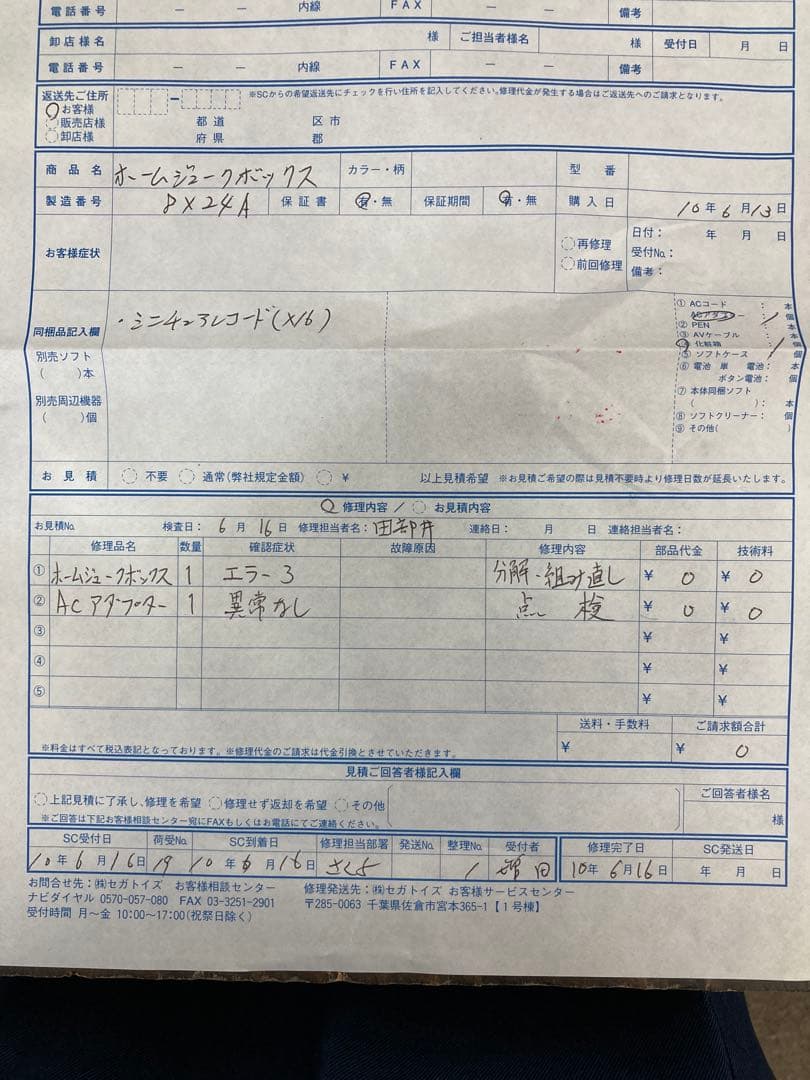 電話番号 － － 内線 FAX － － 備考
卸店様名 様 ご担当者様名 様 受付日 月 日
電話番号 － － 内線 FAX － － 備考
返送先ご住所 ※SCからの希望返送先にチェックを行い住所を記入してください。修理代金が発生する場合はご返送先へのご請求となります。
お客様
販売店様 都道 区市
卸店様 府県 郡
商品名 ホームジュークボックス カラー・柄 型番
製造番号 8X24A 保証書 有・無 保証期間 有・無 購入日 10年6月13日
お客様症状 再修理 前回修理 日付: 年 月 日
受付No.:
備考:
同梱品記入欄 ・ミニチュアレコード(×16)
別売ソフト
( )本
別売周辺機器
( )個
① ACコード : 本
ACアダプター : / 個
② PEN : 本
③ AVケーブル : 本
④ 化粧箱 : / 個
⑤ ソフトケース : 個
⑥ 電池 単 電池: 本
ボタン電池: 個
⑦ 本体同梱ソフト
( ): 本
⑧ ソフトクリーナー: 個
⑨ その他( )
お見積 不要 通常(弊社規定金額) ¥ 以上見積希望 ※お見積ご希望の際は見積不要時より修理日数が延長いたします。
修理内容 / お見積内容
お見積No. 検査日: 6月16日 修理担当者名: 田部井 連絡日: 月 日 連絡担当者名:
修理品名 数量 確認症状 故障原因 修理内容 部品代金 技術料
① ホームジュークボックス 1 エラー3 分解・組み直し ¥ 0 ¥ 0
② ACアダプター 1 異常なし 点検 ¥ 0 ¥ 0
③ ¥ ¥
④ ¥ ¥
⑤ ¥ ¥
送料・手数料 ご請求額合計
※料金はすべて税込表記となっております。※修理代金のご請求は代金引換とさせていただきます。 ¥ ¥ 0
見積ご回答者様記入欄
上記見積に了承し、修理を希望 修理せず返却を希望 その他 ご回答者様名
※ご回答は下記お客様相談センター宛にFAXもしくはお電話にてご連絡ください。 様
SC受付日 荷受No. SC到着日 修理担当部署 発送No. 整理No. 受付者 修理完了日 SC発送日
10年6月16日 19 10年6月16日 さくら 1 田 10年6月16日 年 月 日
お問合せ先:㈱セガトイズ お客様相談センター 修理発送先:㈱セガトイズ お客様サービスセンター
ナビダイヤル 0570-057-080 FAX 03-3251-2901 〒285-0063 千葉県佐倉市宮本365-1【1号棟】
受付時間 月〜金 10:00〜17:00(祝祭日除く)